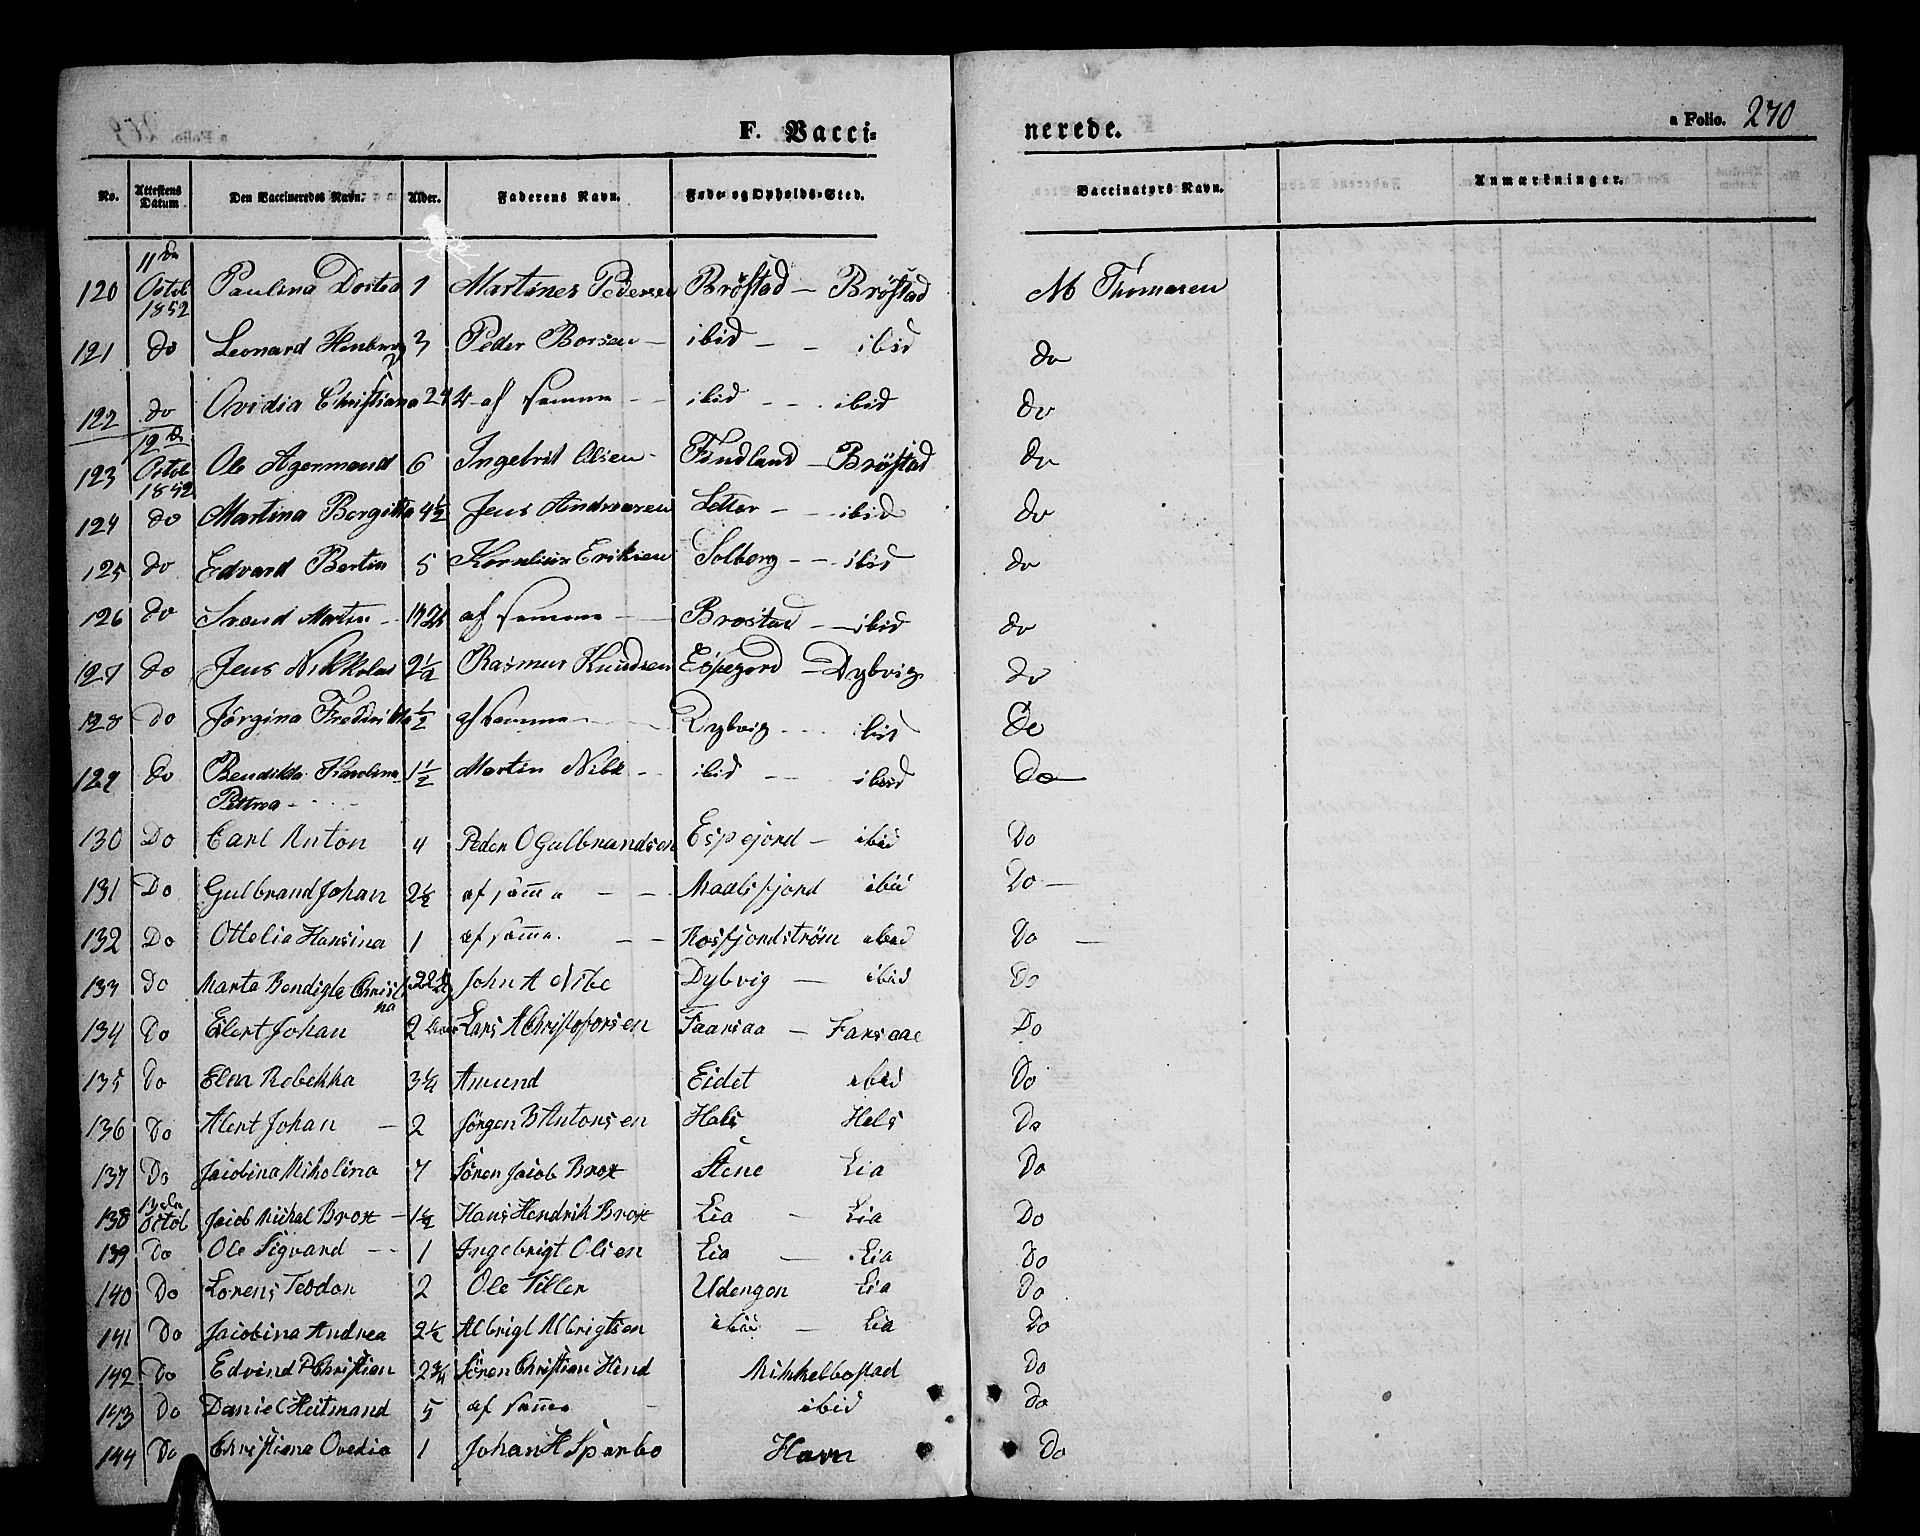 F. Vacci=
nerede.
a Folio. 270
No. Attestens Datum Den Vaccineredes Navn. Alder. Faderens Navn. Føde- og Opholds-Sted. Vaccinatørs Navn. Anmærkninger.
120 11te Octob 1852 Paulina Dortea 1 Martines Pedersen Bröstad — Bröstad M Thomasen
121 do Leonard 3 Peder Borsen — ibid — - ibid do
122 do Ovidia Christiana af samma - - ibid - - - ibid do
123 12te Octob 1852 Ole Agenmand 6 Ingebrit Olsen - Findland — Bröstad do
124 do Martina Bergitta 4½ Jens Andreasen Setter - - ibid do
125 do Edvard Bertin 5 Kornelius Eriksen Solborg - - ibid do
126 do Martin - af samma - - Brostad — ibid do
127 do Jens Nikkolai 2½ Rasmus Knudsen Espegord — Dybvig do
128 do Jörgina Fredrikka ½ af samma - - Dybvig - - - ibid Do
129 do Bendikta Karolina 1½ Martin Nibe - - ibid - - ibid Do —
Petrina - - -
130 Do Carl Anton 4 Peder O Gulbrandsen Espejord — ibid Do
131 Do Gulbrand Johan 2½ af sam̄a — — Maalsfjord ibid Do —
132 Do Ottelia Hansina 1 af sam̄a. — — Rosfjordström ibid Do —
133 Do Marta Bendigta Christina John A Nibe Dybvig — ibid Do
134 Do Elert Johan 2 Lars A Christofersen Faarsaa — Farsaae Do
135 Do Elen Rebekka 3¼ Amund Eidet ibid Do
136 Do Alert Johan — 2 Jörgen B Antonsen Hals Hals Do
137 Do Jacobina Nikolina 7 Sören Jacob Brox Stene Lia Do
138 13de Octob Jacob Mickal Brox — 1½ Hans Hendrik Brox Lia — Lia Do
139 Do Ole Sigvard - - 1 Ingebrigt Olsen Lia — Lia Do
140 Do Lorens Teodor 2 Ole Tiller Udengen Lia Do
141 Do Jacobina Andrea 2½ Albrigt Albrigtsen ibid — Lia Do
142 Do Edvind P Christian 2¾ Sören Christian Hind Mikkelbostad Do
143 Do Daniel Heitmand 5 af sam̄a — ibid Do
144 Do Christiana Ovedia 1 Johan H Sparbo Havn Do